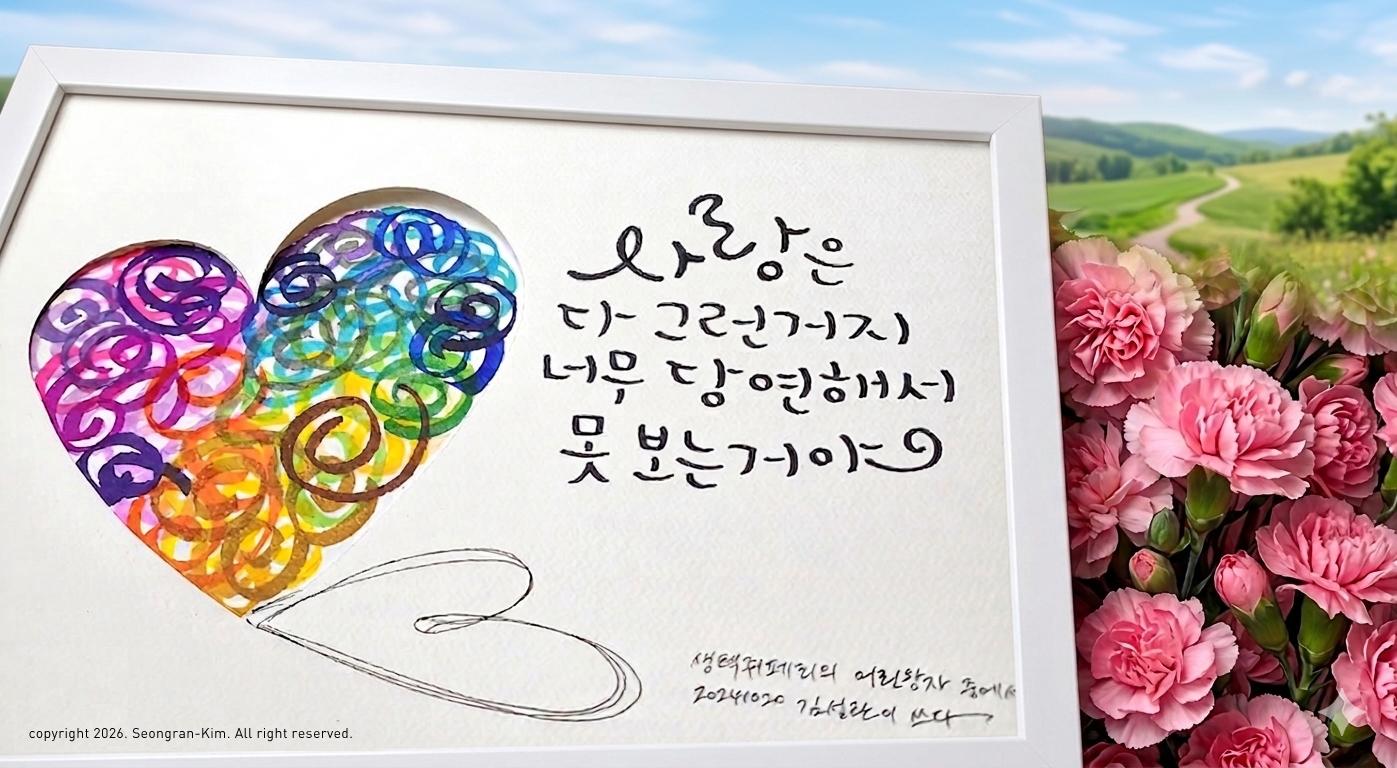 사랑은
다 그런거지
너무 당연해서
못 보는거야
생텍쥐페리의 어린왕자 중에서
20241020 김성란이 쓰다
copyright 2026. Seongran-Kim. All right reserved.